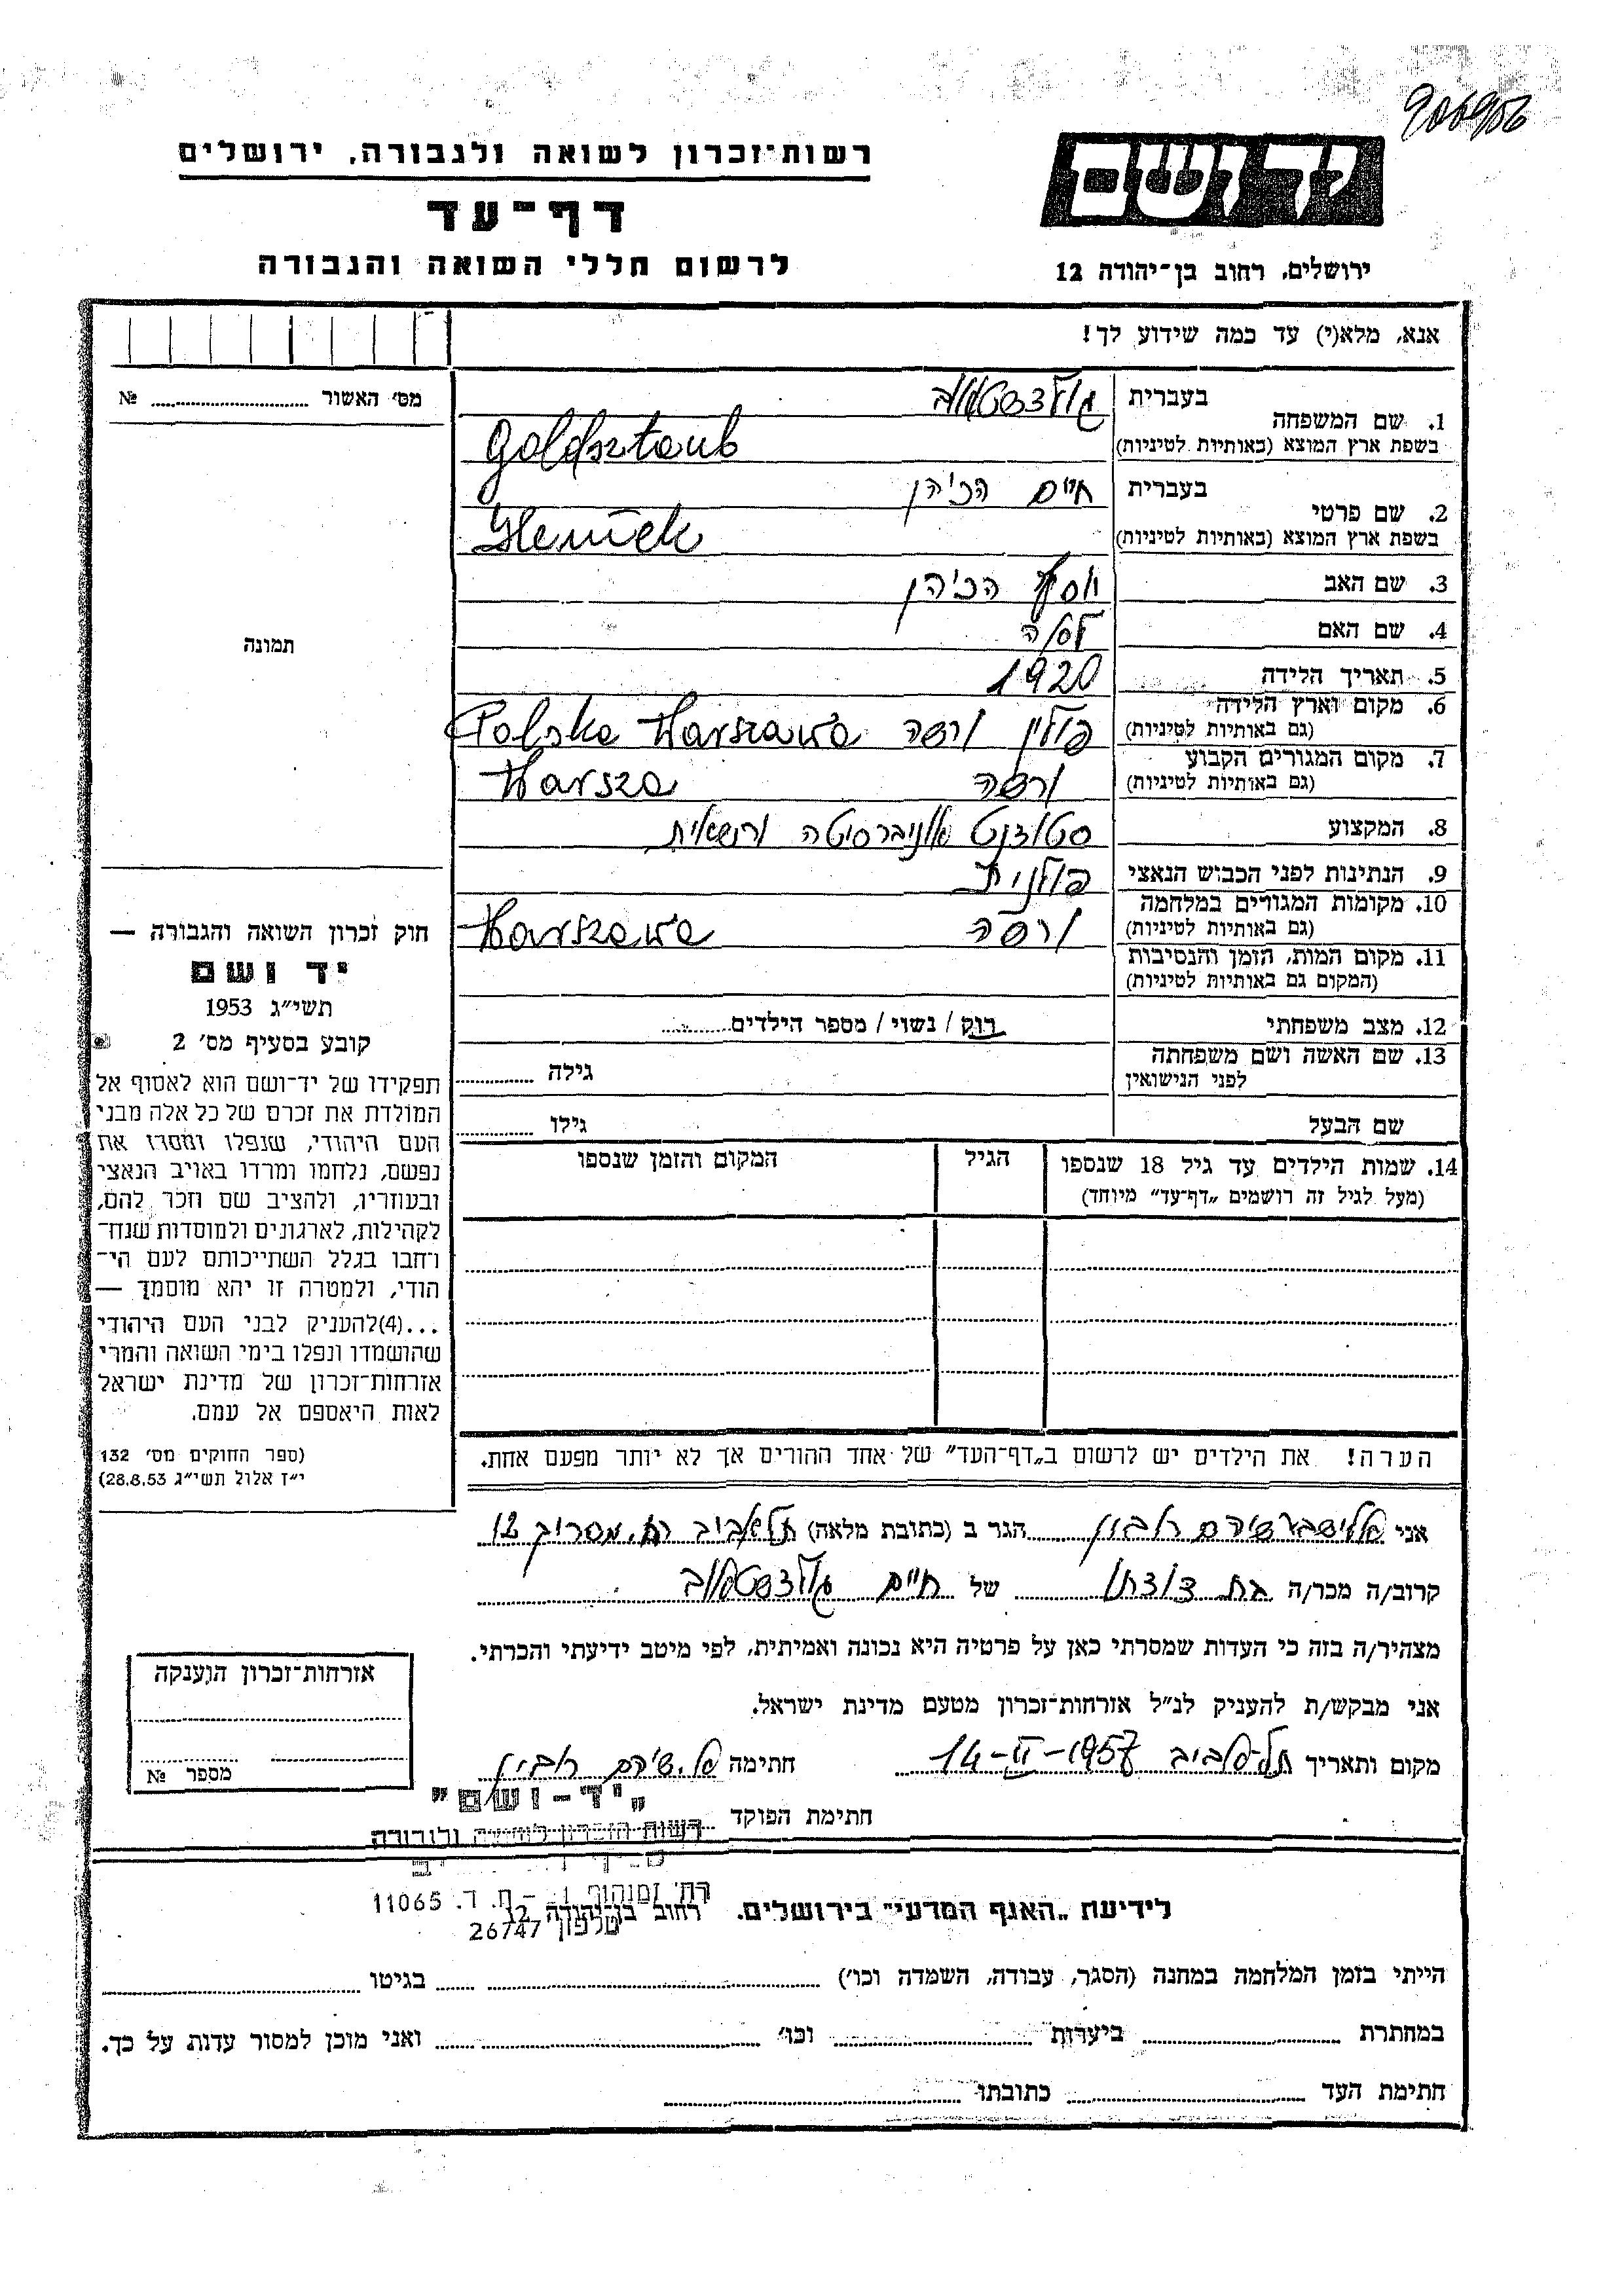 רשות-זכרון לשואה ולגבורה, ירושלים
יד ושם
דף-עד
לרשום חללי השואה והגבורה
ירושלים, רחוב בן-יהודה 12
אנא, מלא(י) עד כמה שידוע לך!
מס' האשור № 
1. שם המשפחה
בעברית גולדשטאוב
בשפת ארץ המוצא (באותיות לטיניות) Goldsztaub
2. שם פרטי
בעברית חיים הכהן
בשפת ארץ המוצא (באותיות לטיניות) Heniek
3. שם האב יוסף הכהן
4. שם האם
5. תאריך הלידה 1920
6. מקום וארץ הלידה
(גם באותיות לטיניות) פולין ורשה Polska Warszawa
7. מקום המגורים הקבוע
(גם באותיות לטיניות) ורשה Warsza
8. המקצוע סטודנט אוניברסיטה ורשאית
9. הנתינות לפני הכבוש הנאצי פולנית
10. מקומות המגורים במלחמה
(גם באותיות לטיניות) ורשה Warszawa
11. מקום המות, הזמן והנסיבות
(המקום גם באותיות לטיניות)
12. מצב משפחתי רוק / נשוי / מספר הילדים
13. שם האשה ושם משפחתה
לפני הנישואין
גילה
שם הבעל גילו
14. שמות הילדים עד גיל 18 שנספו
(מעל לגיל זה רושמים „דף-עד" מיוחד)
הגיל
המקום והזמן שנספו
הערה! את הילדים יש לרשום ב„דף-העד" של אחד ההורים אך לא יותר מפעם אחת.
תמונה
חוק זכרון השואה והגבורה —
יד ושם
תשי"ג 1953
קובע בסעיף מס' 2
תפקידו של יד-ושם הוא לאסוף אל
המולדת את זכרם של כל אלה מבני
העם היהודי, שנפלו ומסרו את
נפשם, נלחמו ומרדו באויב הנאצי
ובעוזריו, ולהציב שם וזכר להם,
לקהילות, לארגונים ולמוסדות שנח-
רחבו בגלל השתייכותם לעם הי-
הודי, ולמטרה זו יהא מוסמך —
...(4)להעניק לבני העם היהודי
שהושמדו ונפלו בימי השואה והמרי
אזרחות-זכרון של מדינת ישראל
לאות היאספם אל עמם.
(ספר החוקים מס' 132
י"ז אלול תשי"ג 28.8.53)
אני אלישבע שירם רבון הגר ב (כתובת מלאה) תל אביב רח. 12
קרוב/ה מכר/ה בת דודתו של חיים גולדשטאוב
מצהיר/ה בזה כי העדות שמסרתי כאן על פרטיה היא נכונה ואמיתית, לפי מיטב ידיעתי והכרתי.
אני מבקש/ת להעניק לנ"ל אזרחות-זכרון מטעם מדינת ישראל.
מקום ותאריך תל-אביב 14-II-1957 חתימה א. שירם רבון
חתימת הפוקד
אזרחות-זכרון הוענקה
מספר №
„יד-ושם"
רשות הזכרון לשואה ולגבורה
רח' זמנהוף 1 - ת. ד. 11065
רחוב בן-יהודה 12
טלפון 26747
לידיעת „האגף המדעי" בירושלים.
הייתי בזמן המלחמה במחנה (הסגר, עבודה, השמדה וכו') בגיטו
במחתרת ביערות וכו' ואני מוכן למסור עדות על כך.
חתימת העד כתובתו